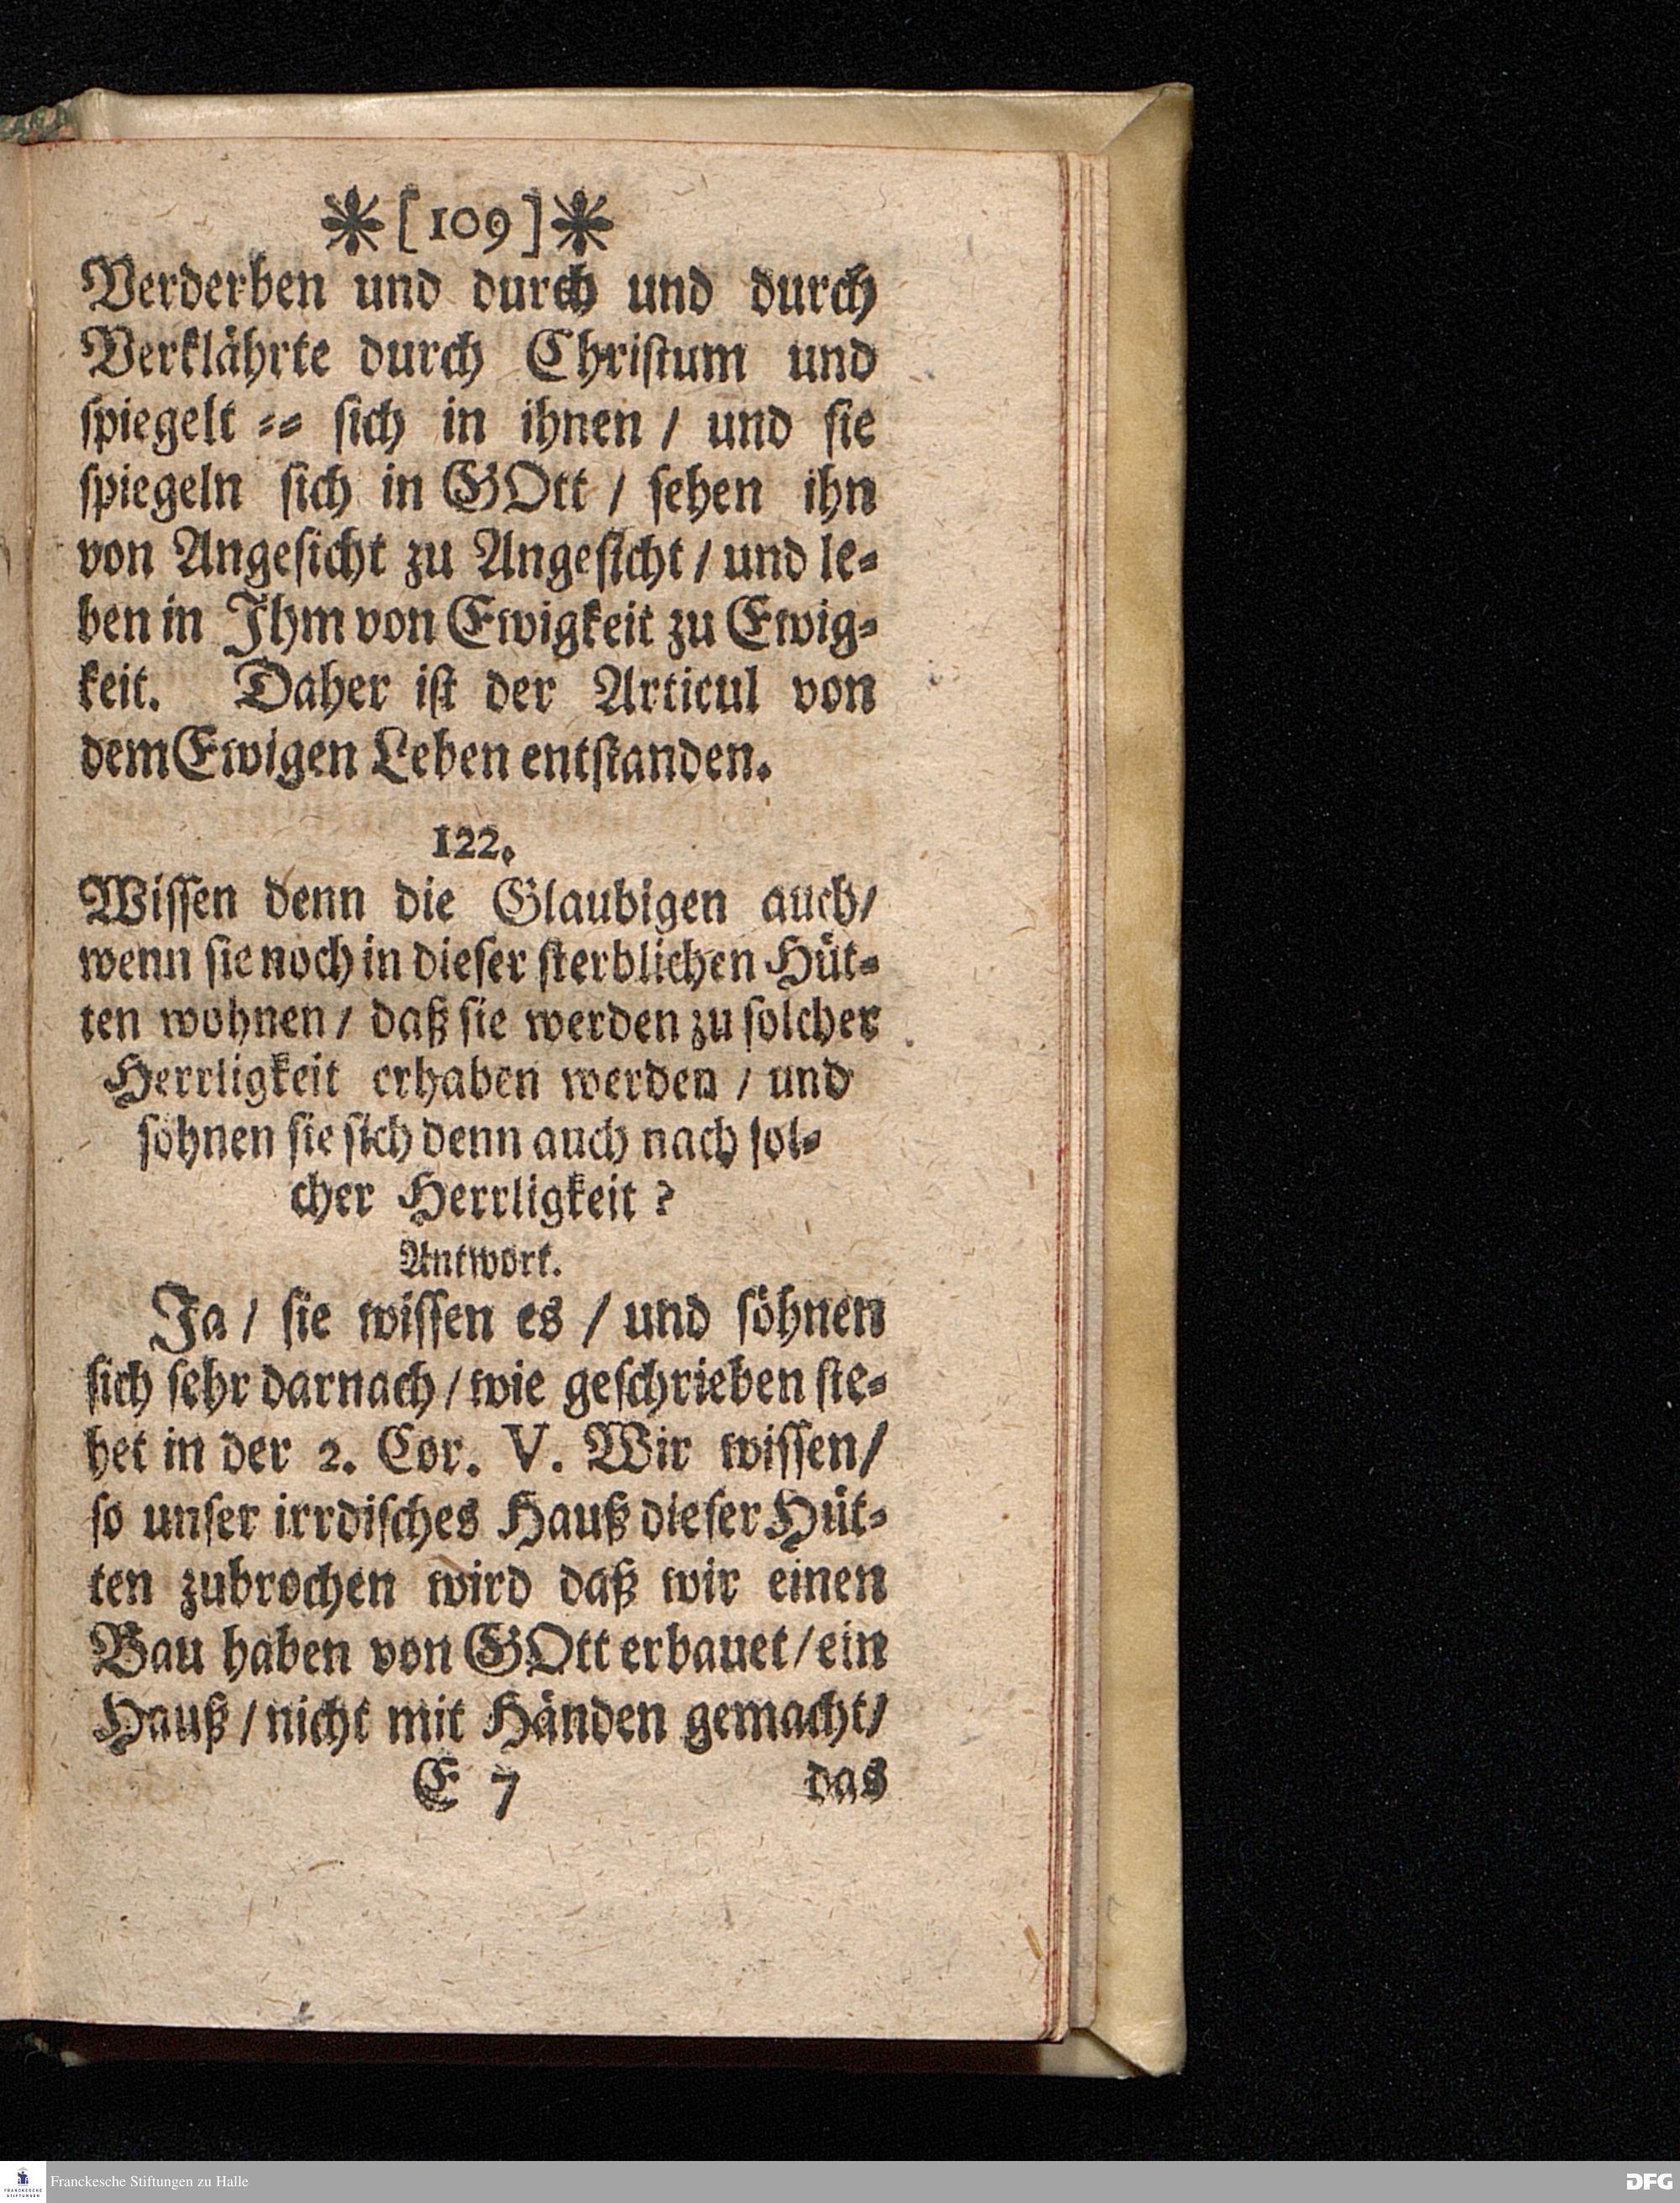 ❋[109]❋
Verderben und durch und durch
Verklährte durch Christum und
spiegelt == sich in ihnen / und sie
spiegeln sich in GOtt / sehen ihn
von Angesicht zu Angesicht / und le=
ben in Jhm von Ewigkeit zu Ewig=
keit. Daher ist der Articul von
dem Ewigen Leben entstanden.
122.
Wissen denn die Glaubigen auch/
wenn sie noch in dieser sterblichen Hüt=
ten wohnen / daß sie werden zu solcher
Herrligkeit erhaben werden / und
söhnen sie sich denn auch nach sol=
cher Herrligkeit?
Antwort.
Ja / sie wissen es / und söhnen
sich sehr darnach / wie geschrieben ste=
het in der 2. Cor. V. Wir wissen/
so unser irrdisches Hauß dieser Hüt=
ten zubrochen wird daß wir einen
Bau haben von GOtt erbauet / ein
Hauß / nicht mit Händen gemacht/
E 7 das
FRANCKESCHE STIFTUNGEN
Franckesche Stiftungen zu Halle
DFG